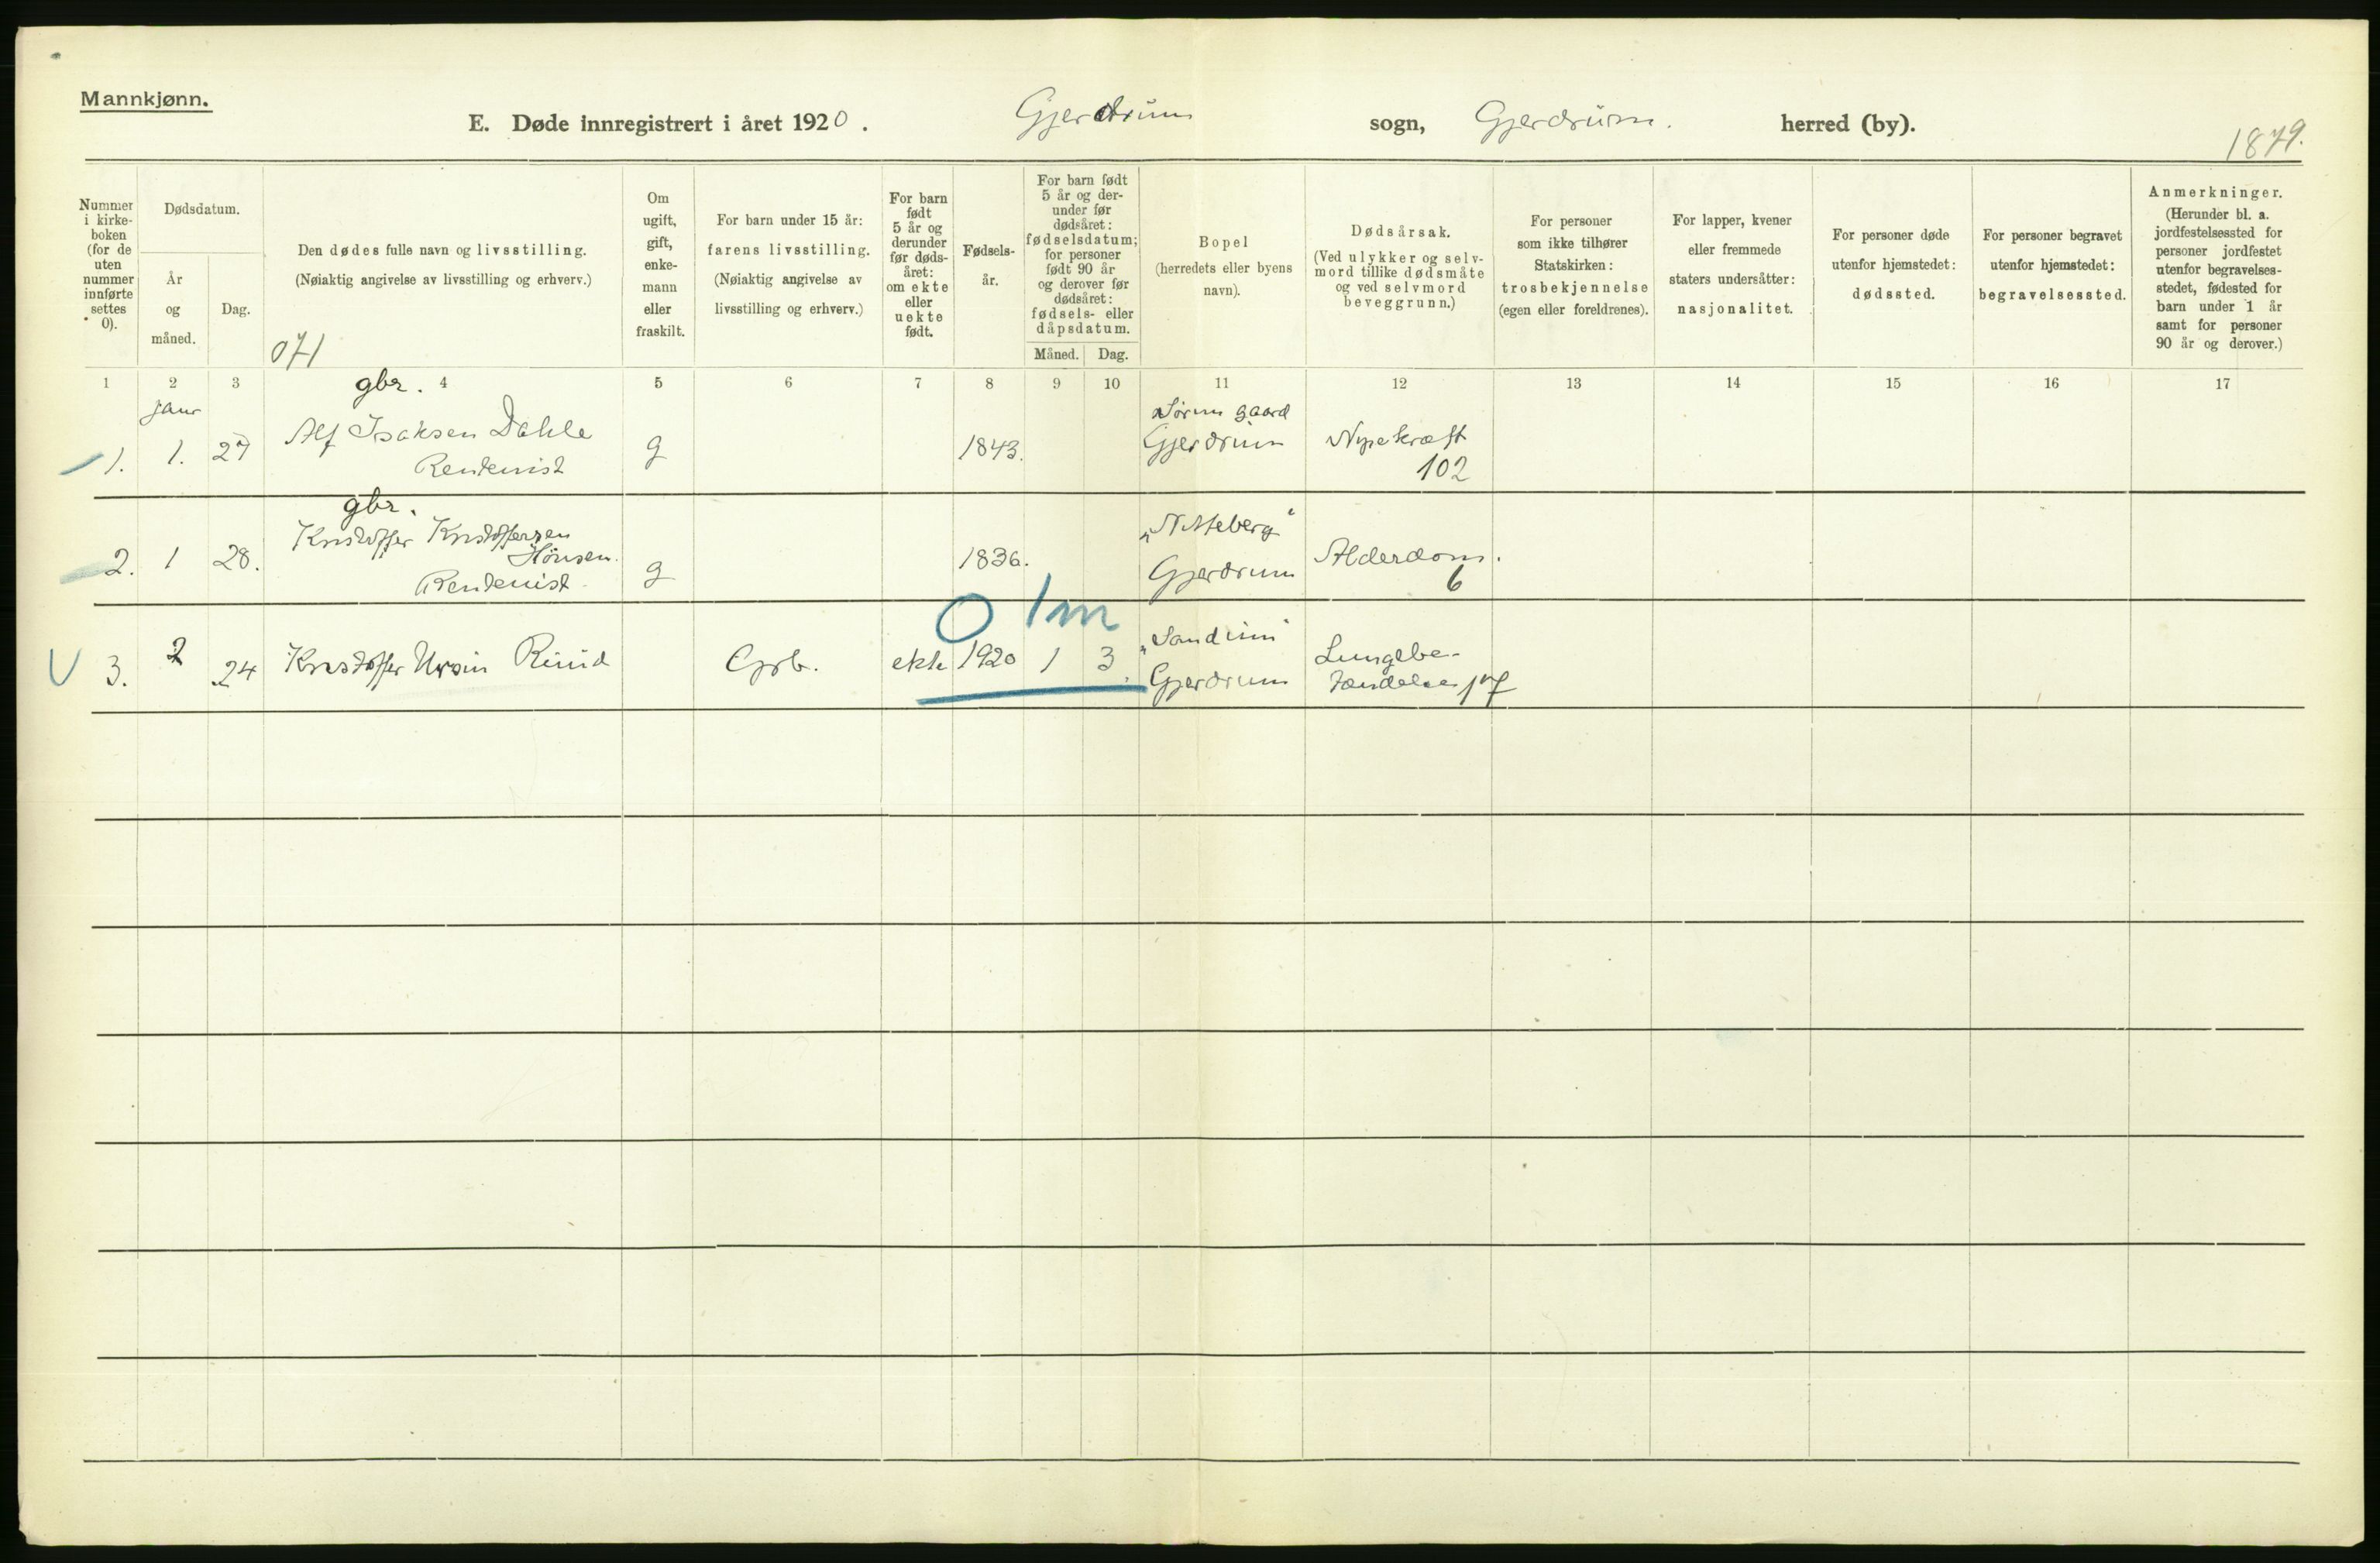 Mannkjønn.
E. Døde innregistrert i året 1920. Gjerdrum sogn, Gjerdrum. herred (by).
1879.
Nummer
i kirke-
boken
(for de
uten
nummer
innførte
settes
0).
Dødsdatum.
År
og
måned.
Dag.
Den dødes fulle navn og livsstilling.
(Nøiaktig angivelse av livsstilling og erhverv.)
071
Om
ugift,
gift,
enke-
mann
eller
fraskilt.
For barn under 15 år:
farens livsstilling.
(Nøiaktig angivelse av
livsstilling og erhverv.)
For barn
født
5 år og
derunder
før døds-
året:
om ekte
eller
uekte
født.
Fødsels-
år.
For barn født
5 år og der-
under før
dødsåret:
fødselsdatum;
for personer
født 90 år
og derover før
dødsåret:
fødsels- eller
dåpsdatum.
Måned. Dag.
Bopel
(herredets eller byens
navn).
Dødsårsak.
(Ved ulykker og selv-
mord tillike dødsmåte
og ved selvmord
beveggrunn.)
For personer
som ikke tilhører
Statskirken:
trosbekjennelse
(egen eller foreldrenes).
For lapper, kvener
eller fremmede
staters undersåtter:
nasjonalitet.
For personer døde
utenfor hjemstedet:
dødssted.
For personer begravet
utenfor hjemstedet:
begravelsessted.
Anmerkninger.
(Herunder bl. a.
jordfestelsessted for
personer jordfestet
utenfor begravelses-
stedet, fødested for
barn under 1 år
samt for personer
90 år og derover.)
1 2 3 4 5 6 7 8 9 10 11 12 13 14 15 16 17
gbr.
Janr
1. 1. 27 Alf Isaksen Dahle
Rentenist
g 1843.
Sørum gaard
Gjerdrum
Nyrekræft
102
gbr.
2. 1 28. Kristoffer Kristoffersen
Hønsen.
Rentenist
g 1836.
"Nitteberg"
Gjerdrum
Alderdom.
6
0 1m
3. 2 24 Kristoffer Ursin Ruud Gprb. ekte 1920 1 3.
"Sandum"
Gjerdrum
Lungebe-
tændelse 17